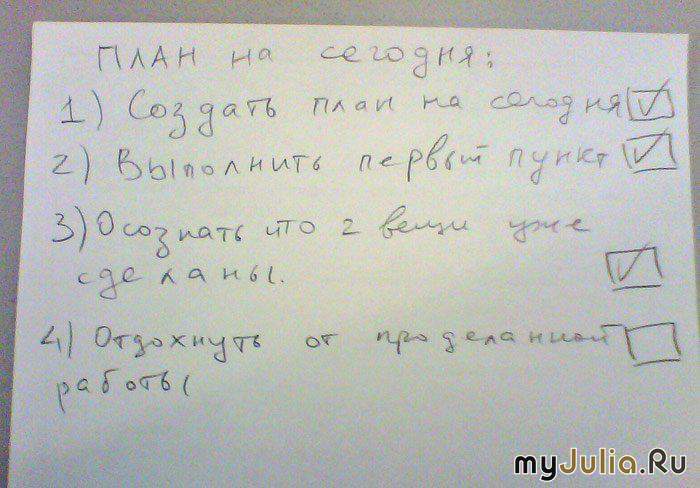 ПЛАН на сегодня:
1) Создать план на сегодня
2) Выполнить первый пункт
3) Осознать что 2 вещи уже
сделаны.
4) Отдохнуть от проделанной
работы
myJulia.Ru